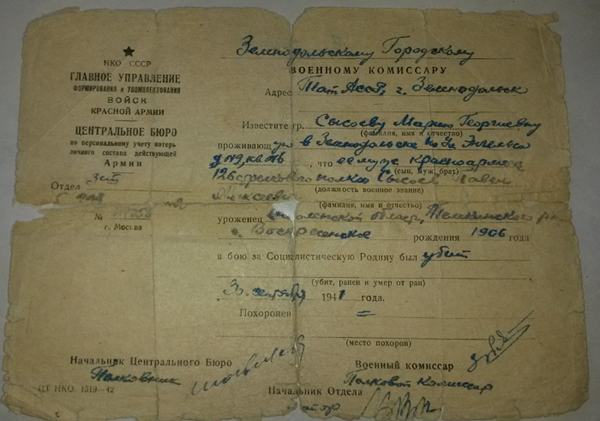 НКО СССР
ГЛАВНОЕ УПРАВЛЕНИЕ
ФОРМИРОВАНИЯ и УКОМПЛЕКТОВАНИЯ
ВОЙСК
КРАСНОЙ АРМИИ
ЦЕНТРАЛЬНОЕ БЮРО
по персональному учету потерь
личного состава действующей
Армии
Отдел
№
г. Москва
Зеленодольскому Городскому
ВОЕННОМУ КОМИССАРУ
Адрес ТатАССР, г. Зеленодольск
Известите гр. Сысоеву Марию Георгиевну
(фамилия, имя и отчество)
проживающ ую в Зеленодольске по ул Энгельса
, что ее муж красноармеец
(сын, муж, брат)
стрелкового полка Сысоев Павел
(должность военное звание)
Алексеевич
(фамилия, имя и отчество)
уроженец Смоленской области,
Воскресенское рождения 1906 года
в бою за Социалистическую Родину был убит
(убит, ранен и умер от ран)
30 сентября 1941 года.
Похоронен =
(место похорон)
Начальник Центрального Бюро
Полковник
Военный комиссар
Полковой Комиссар
Начальник Отдела
ЦТ НКО. 1519—42